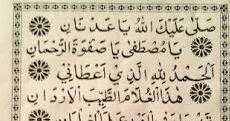 صَلَى عَلَيْكَ اللهُ يَا عَدْنَانِ
يَا مُصْطَفٰى يَا صَفْوَةَ الرَّحْمَانِ
اَلْحَمْدُ لِلّٰهِ الَّذِي أَعْطَانِي
هٰذَا الْغُلَامَ الطَّيِّبَ الْأَرْدَانِ